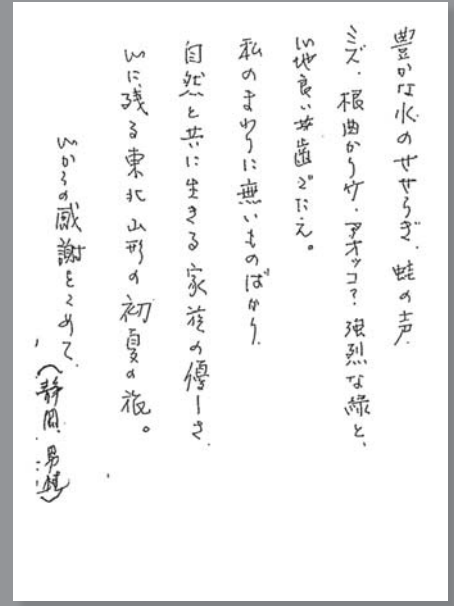 豊かな水のせせらぎ、蛙の声
ミズ、根曲がり竹、アオッコ?強烈な緑と、
心地良い歯ごたえ。
私のまわりに無いものばかり、
自然と共に生きる家族の優しさ、
心に残る東北山形の初夏の旅。
心からの感謝をこめて、
(静岡、男性)